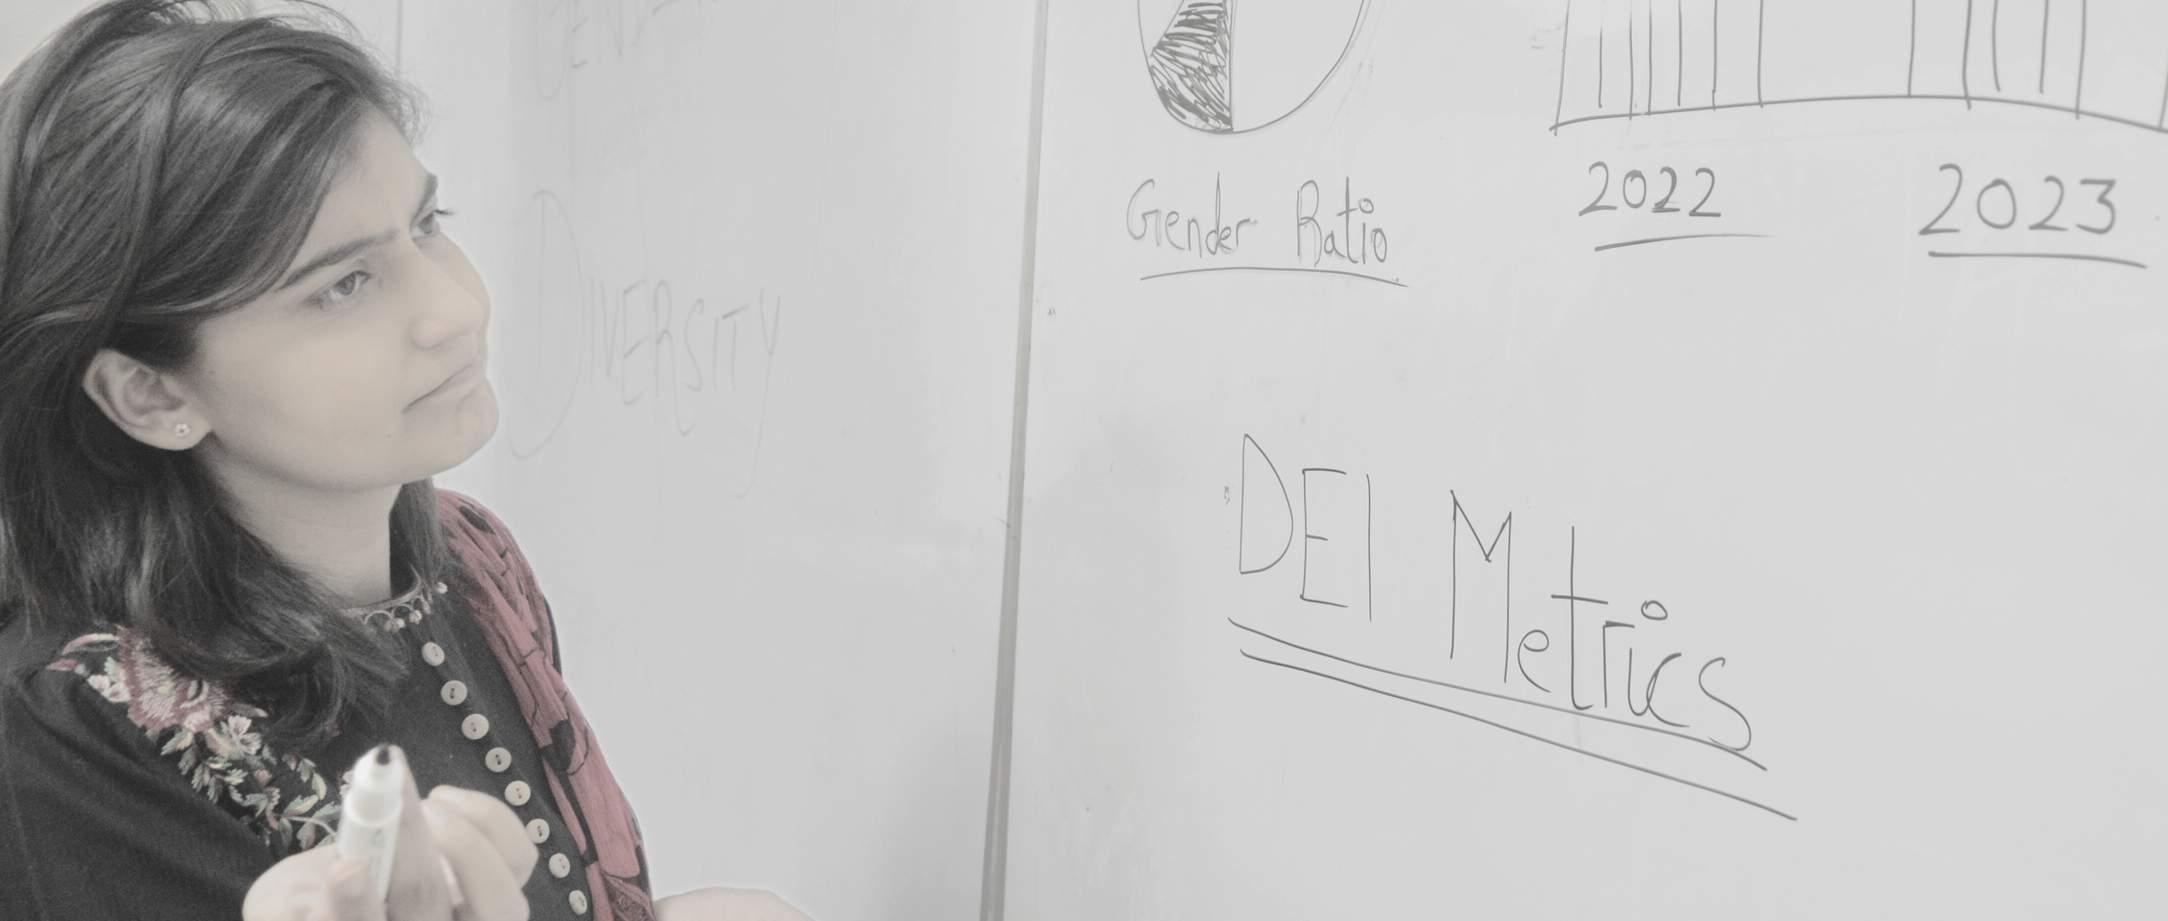 DIVERSITY
Gender Ratio
2022
2023
DEI Metrics